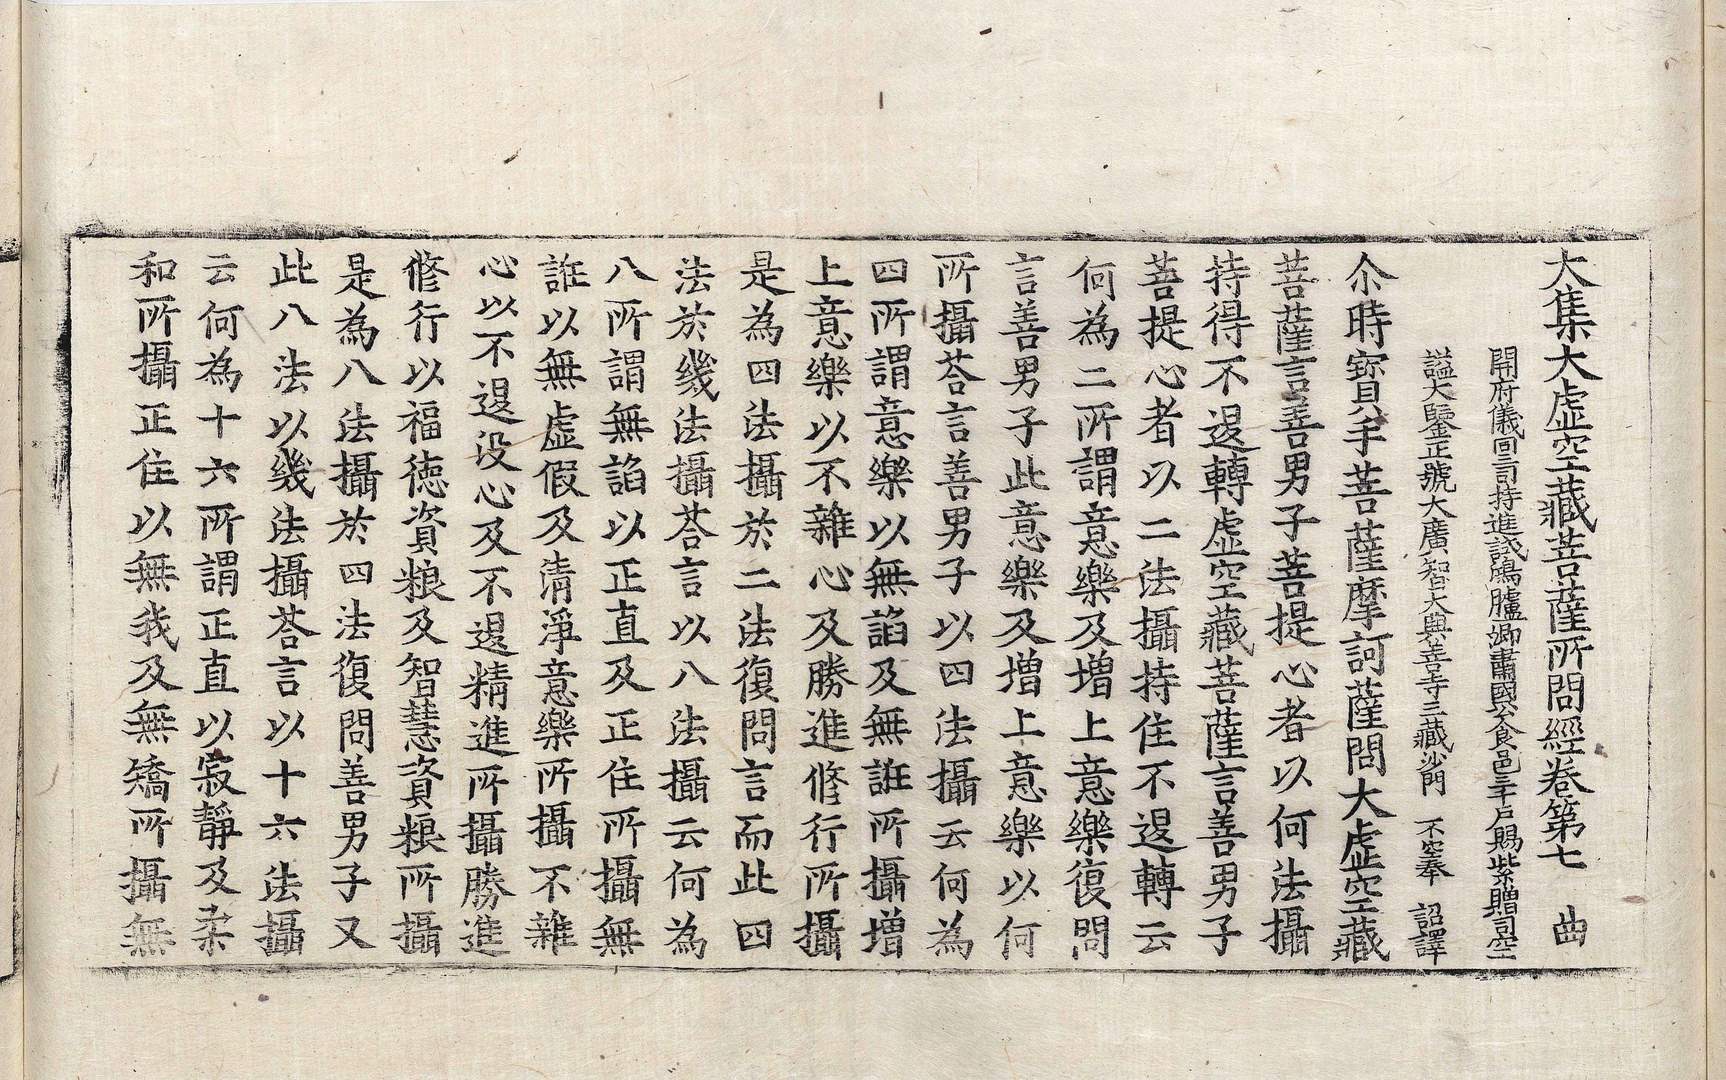 大集大虛空藏菩薩所問經卷第七　曲
開府儀同三司特進試鴻臚卿肅國公食邑三千戶賜紫贈司空
謚大鑒正號大廣智大興善寺三藏沙門　不空奉　詔譯
尒時寶手菩薩摩訶薩問大虛空藏
菩薩言善男子菩提心者以何法攝
持得不退轉虛空藏菩薩言善男子
菩提心者以二法攝持住不退轉云
何為二所謂意樂及增上意樂復問
言善男子此意樂及增上意樂以何
所攝荅言善男子以四法攝云何為
四所謂意樂以無諂及無誑所攝增
上意樂以不雜心及勝進修行所攝
是為四法攝於二法復問言而此四
法於幾法攝荅言以八法攝云何為
八所謂無諂以正直及正住所攝無
誑以無虛假及清淨意樂所攝不雜
心以不退没心及不退精進所攝勝進
修行以福德資粮及智慧資粮所攝
是為八法攝於四法復問善男子又
此八法以幾法攝荅言以十六法攝
云何為十六所謂正直以寂靜及柔
和所攝正住以無我及無矯所攝無